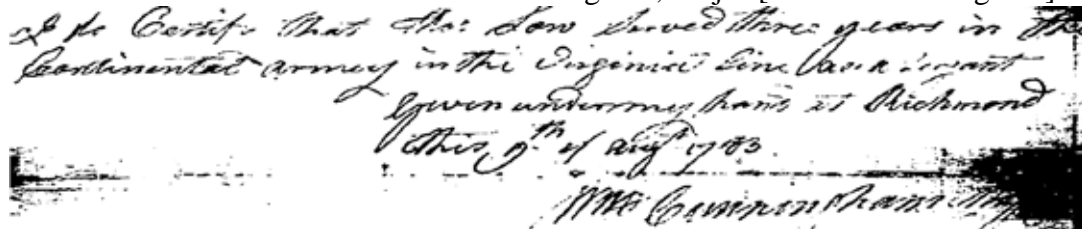 I do Certify that Thos Low Served three years in the
Continental army in the Virginia Line as a
Given under my hand at Richmond
this 9th of augt 1783
Wm Cunningham